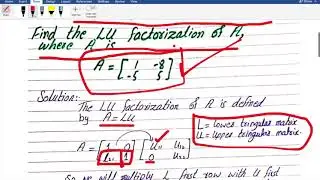 Find the LU factorization of A,
where A is .
A = [ 1 -8
-5 5 ]
Solution:-
The LU factorization of A is defined
by A = LU
L = lower triangular matrix
U = upper triangular matrix.
A = [ 1 0
L₂₁ 1 ] [ U₁₁ U₁₂
0 U₂₂ ]
So we will multiply L first row with U first